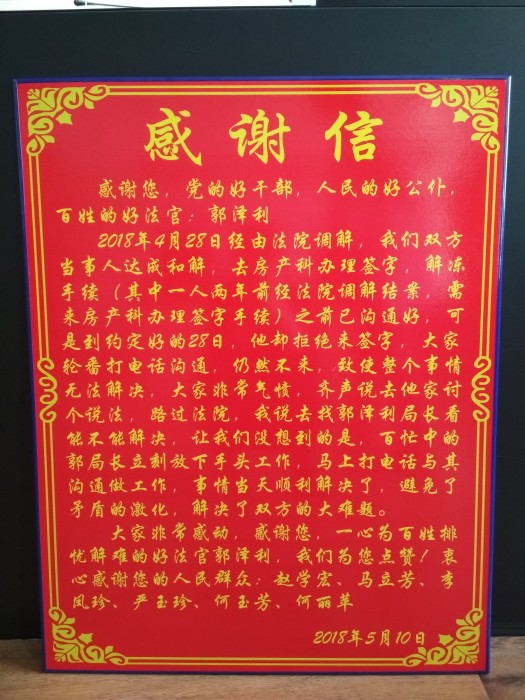 感谢信
感谢您，党的好干部，人民的好公仆，
百姓的好法官：郭泽利
2018年4月28日经由法院调解，我们双方
当事人达成和解，去房产科办理签字，解冻
手续（其中一人两年前经法院调解结案，需
来房产科办理签字手续）之前已沟通好，可
是到约定好的28日，他却拒绝来签字，大家
轮番打电话沟通，仍然不来，致使整个事情
无法解决，大家非常气愤，齐声说去他家讨
个说法，路过法院，我说去找郭泽利局长看
能不能解决，让我们没想到的是，百忙中的
郭局长立刻放下手头工作，马上打电话与其
沟通做工作，事情当天顺利解决了，避免了
矛盾的激化，解决了双方的大难题。
大家非常感动，感谢您，一心为百姓排
忧解难的好法官郭泽利，我们为您点赞！衷
心感谢您的人民群众：赵学宏、马立芳、李
凤珍、严玉珍、何玉芳、何丽苹
2018年5月10日